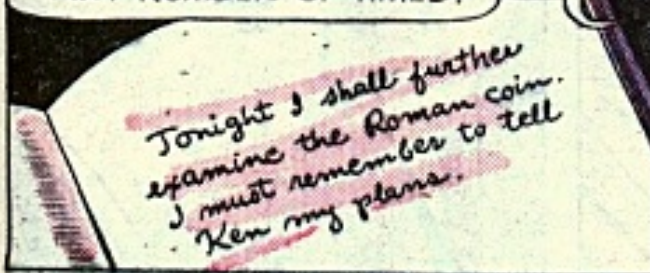 Tonight I shall further
examine the Roman coin.
I must remember to tell
Ken my plans.